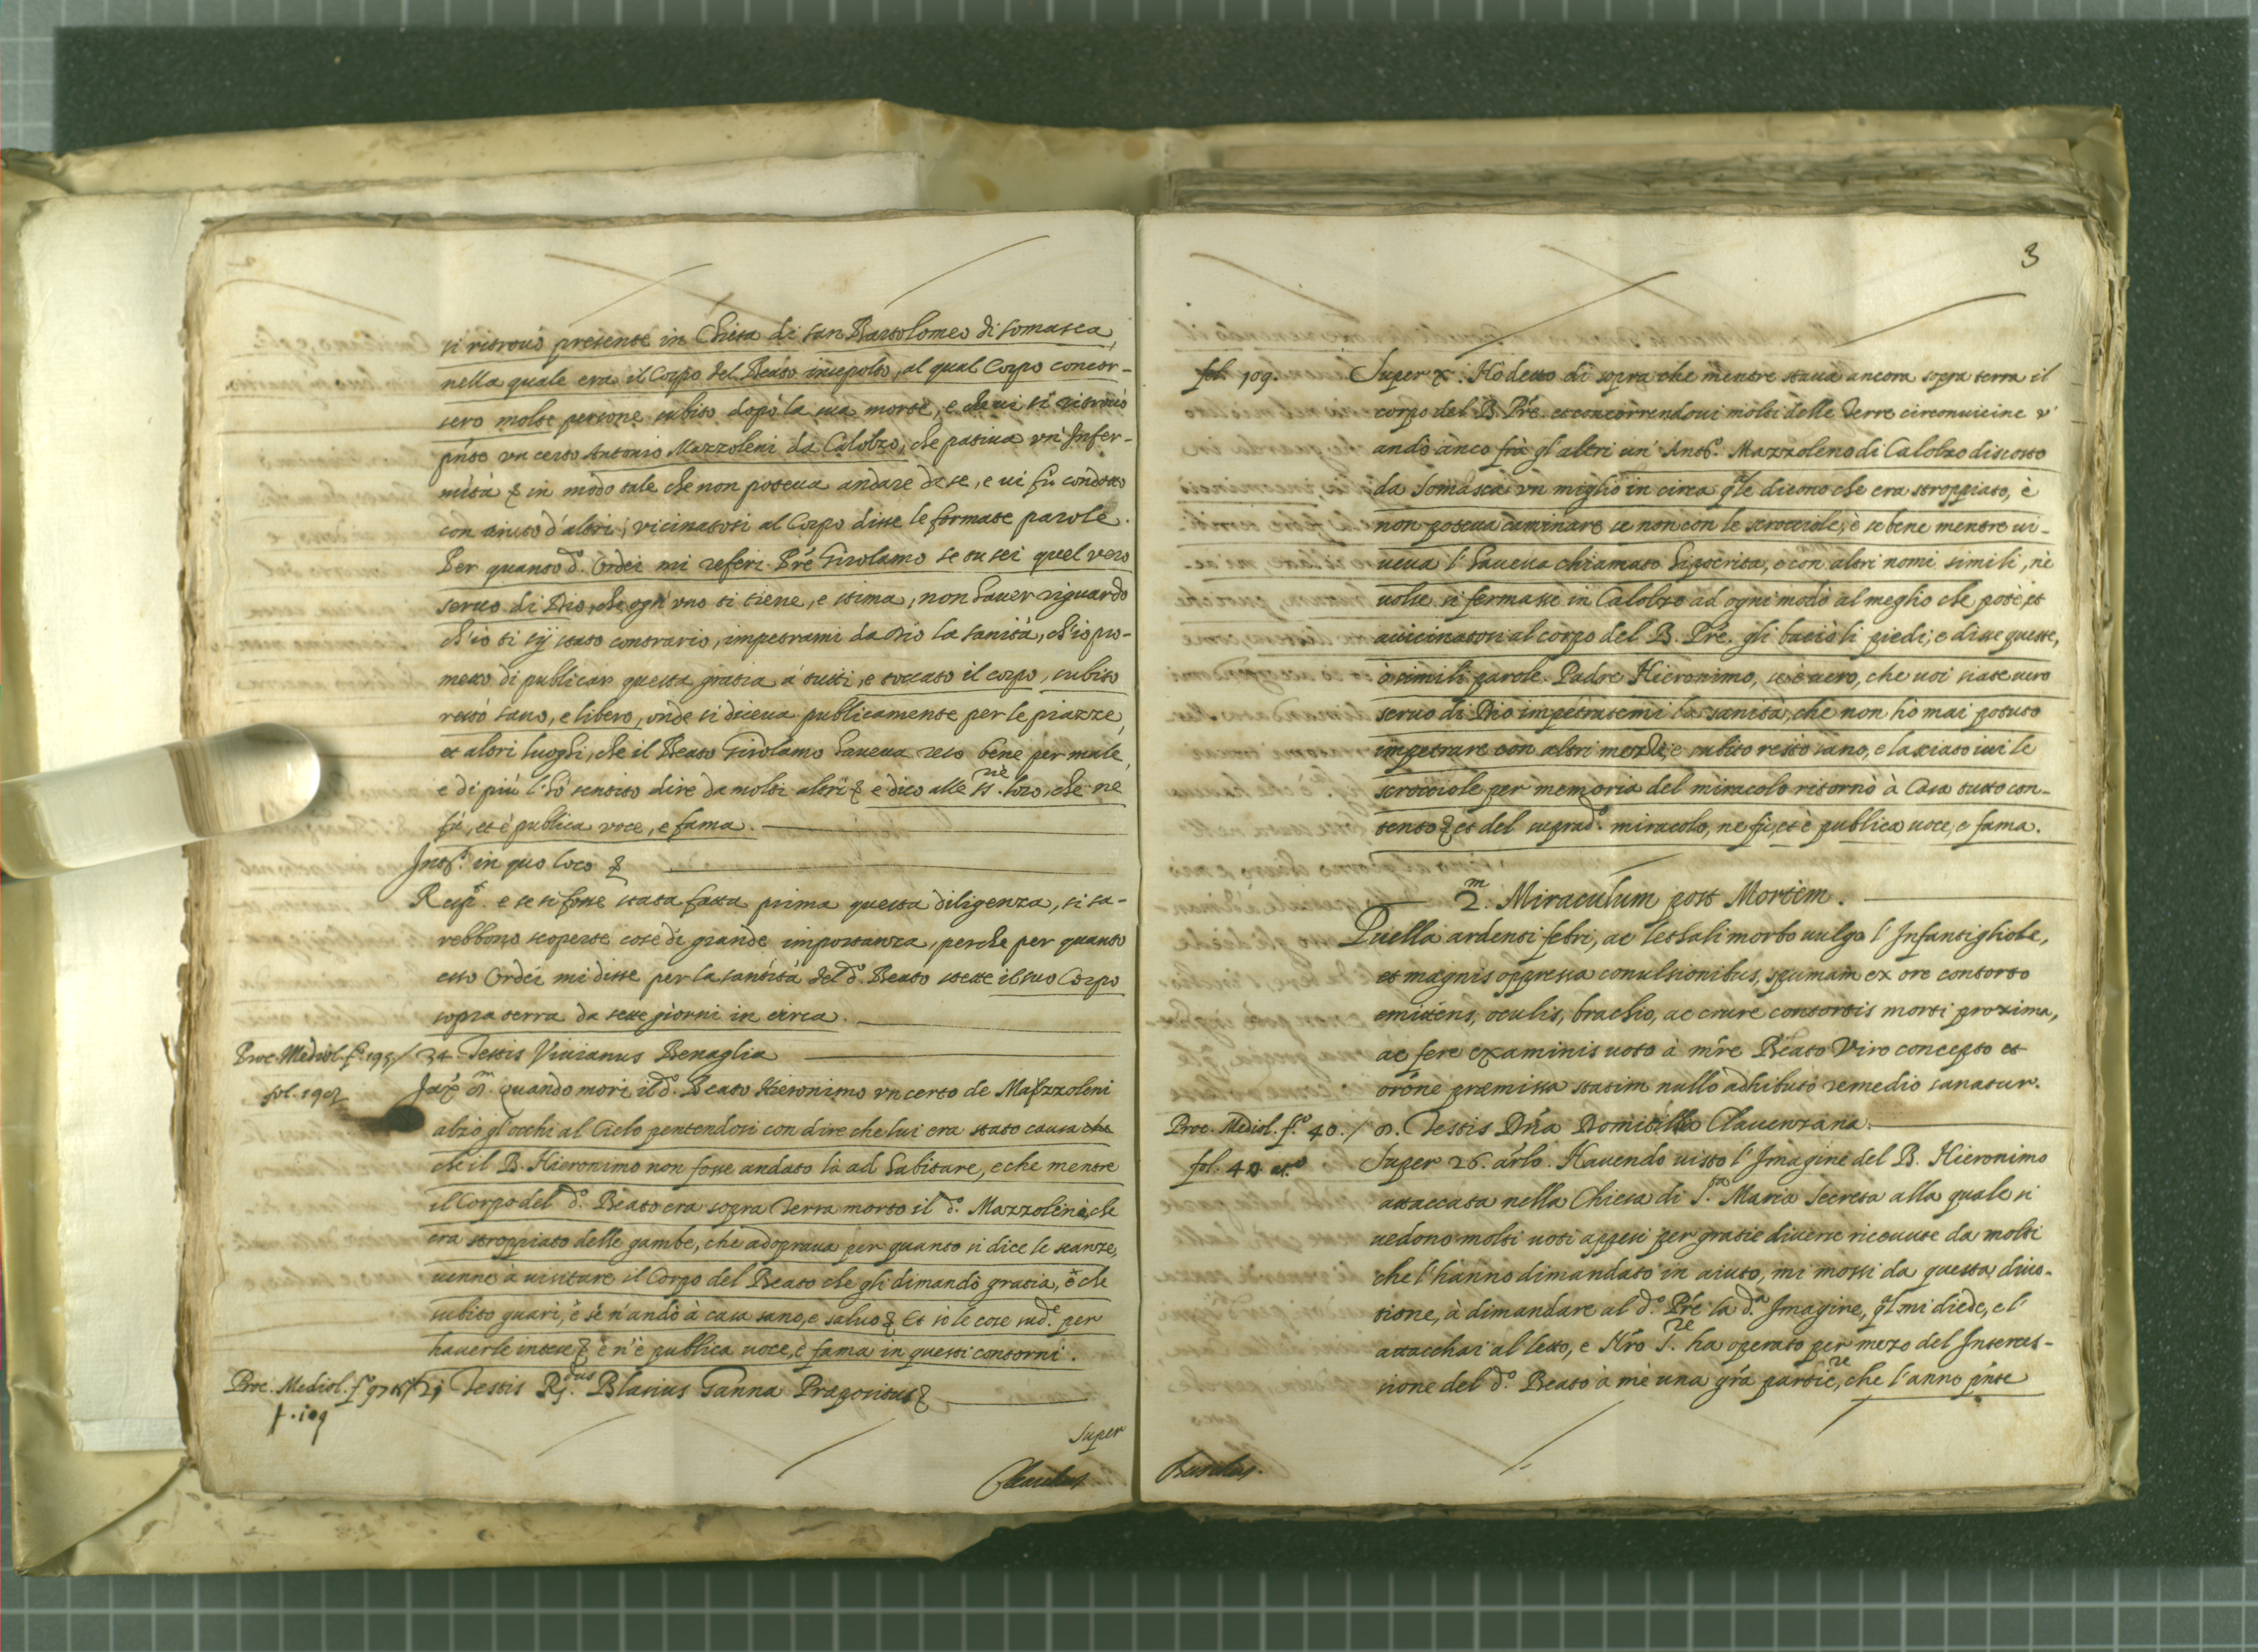 si ritrouò presente in Chiesa di san Bartolomeo di somasca,
nella quale era il Corpo del Beato insepolto, al qual Corpo concor-
sero molte persone subito dopò la sua morte, e che ui si ritrouò
pn̄te vn certo Antonio Mazzoleni da Calolzo, che patiua vn' Infer-
mità & in modo tale che non poteua andare da se, e ui fù condotto
con aiuto d'altri, vicinatosi al Corpo disse le formate parole.
Per quanto d.º Ordei mi referì. Prē Girolamo se tu sei quel vero
seruo di Dio, che ogn' vno ti tiene, e stima, non hauer riguardo
ch'io ti sÿ stato contrario, impetrami da Dio la sanità, ch'io pro-
metto di publicar questa gratia á tutti, e toccato il corpo, subito
restò sano, e libero, onde si diceua publicamente per le piazze,
et altri luoghi, che il Beato Girolamo haueua reso bene per male,
e di più l'hò sentito dire da molti altri & e dico alle SS.rie loro, che ne
fù, et è publica voce, e fama.
Int.º in quo loco &
Resp.t e se si fosse stata fatta prima questa diligenza, si sa-
rebbono scoperte cose di grande importanza, perche per quanto
esso Ordei mi disse per la santità del d.º Beato stette il suo Corpo
sopra terra da sette giorni in circa.
Proc. Mediol. f.º 195 / 34. Testis Viuianus Benaglia
fol. 197
quando morì il d.º Beato Hieronimo vn certo de Mazzoleni
alzò gl'occhi al Cielo pentendosi con dire che lui era stato causa che
che il B. Hieronimo non fosse andato là ad habitare, e che mentre
il Corpo del d.º Beato era sopra terra morto il d.º Mazzoleni, che
era stroppiato delle gambe, che adopraua per quanto si dice le scanze,
uenne à uisitare il Corpo del Beato che gli dimandò gratia, è che
subito guarì, è se n'andò à casa sano, e saluo & Et sò le cose sud.e per
hauerle intese & è n'è publica uoce, è fama in questi contorni.
Proc. Mediol. f.º 97 / 21 Testis R.dus Blasius Ganna Præpositus &
f. 109
super
3
fol. 109. Super X. Hò detto di sopra che mentre staua ancora sopra terra il
corpo del B. Prē. et concorrendoui molti delle Terre circonuicine v'
andò anco frà gl'altri un' Ant.º Mazzoleno di Calolzo discosto
da Somasca vn miglio in circa qle dicono che era stroppiato, è
non poteua caminare se non con le scrocciole, è se bene mentre ui-
ueua l'haueua chiamato hipocrita, e con altri nomi simili, nè
uolse si fermasse in Calolzo ad ogni modo al meglio che potè, et
auicinatosi al corpo del B. Prē. gli baciò li piedi, e disse queste,
ò simili parole. Padre Hieronimo, se è uero, che uoi siate uero
seruo di Dio impetratemi la sanità, che non hò mai potuto
impetrare con altri mezzi, e subito restò sano, e lasciato iui le
scrocciole per memoria del miracolo ritornò à Casa tutto con-
tento & et del suprad.º miracolo, ne fù, et è publica uoce, e fama.
2.m Miraculum post Mortem.
Puella ardenti febri, ac lethali morbo uulgo l'Infantigliole,
et magnis oppressa conulsionibus, spumam ex ore contorto
emittens, oculis, brachio, ac crure contortis morti proxima,
ac fere examinis uoto à mr̄e Beato Viro concepto et
orōne præmissa statim nullo adhibito remedio sanatur.
Proc. Mediol. f.º 40. / 8. Testis Dn̄a Domitilla Clauenzana.
fol. 40 at.º Super 26. ar̄lo. Hauendo uisto l'Imagine del B. Hieronimo
attaccata nella Chiesa di S.ta Maria Secreta alla quale si
uedono molti uoti appesi per gratie diuerse riceuute da molti
che l'hanno dimandato in aiuto, mi mossi da questa diuo-
tione, à dimandare al d.º Prē la d.a Imagine, ql mi diede, e l'
attacchai al letto, e Nr̄o S.re ha operato per mezo del Interces-
sione del d.º Beato à me una gr̄a partic.re, che l'anno pn̄te